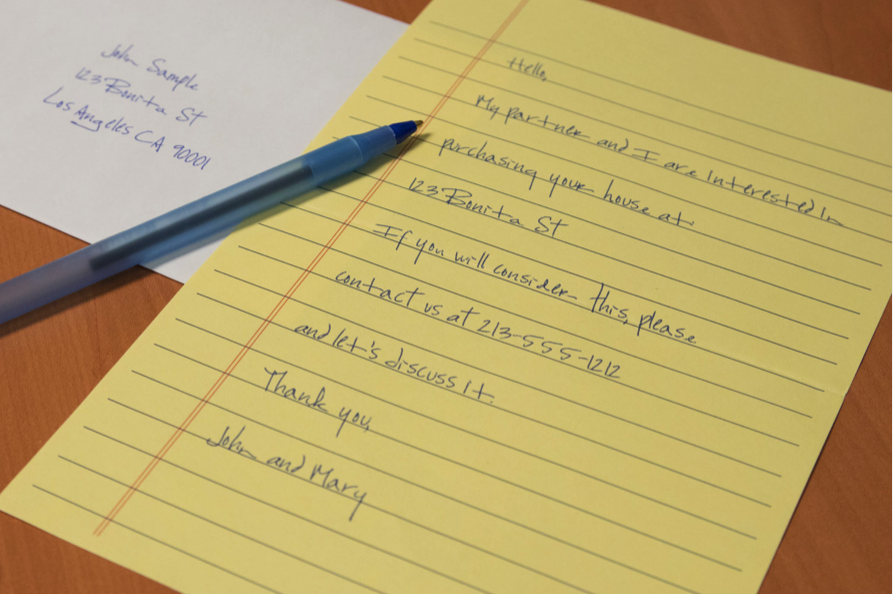 John Sample
123 Bonita St
Los Angeles CA 90001
Hello,
My partner and I are interested in
purchasing your house at
123 Bonita St
If you will consider this, please
contact us at 213-555-1212
and let's discuss it.
Thank you,
John and Mary